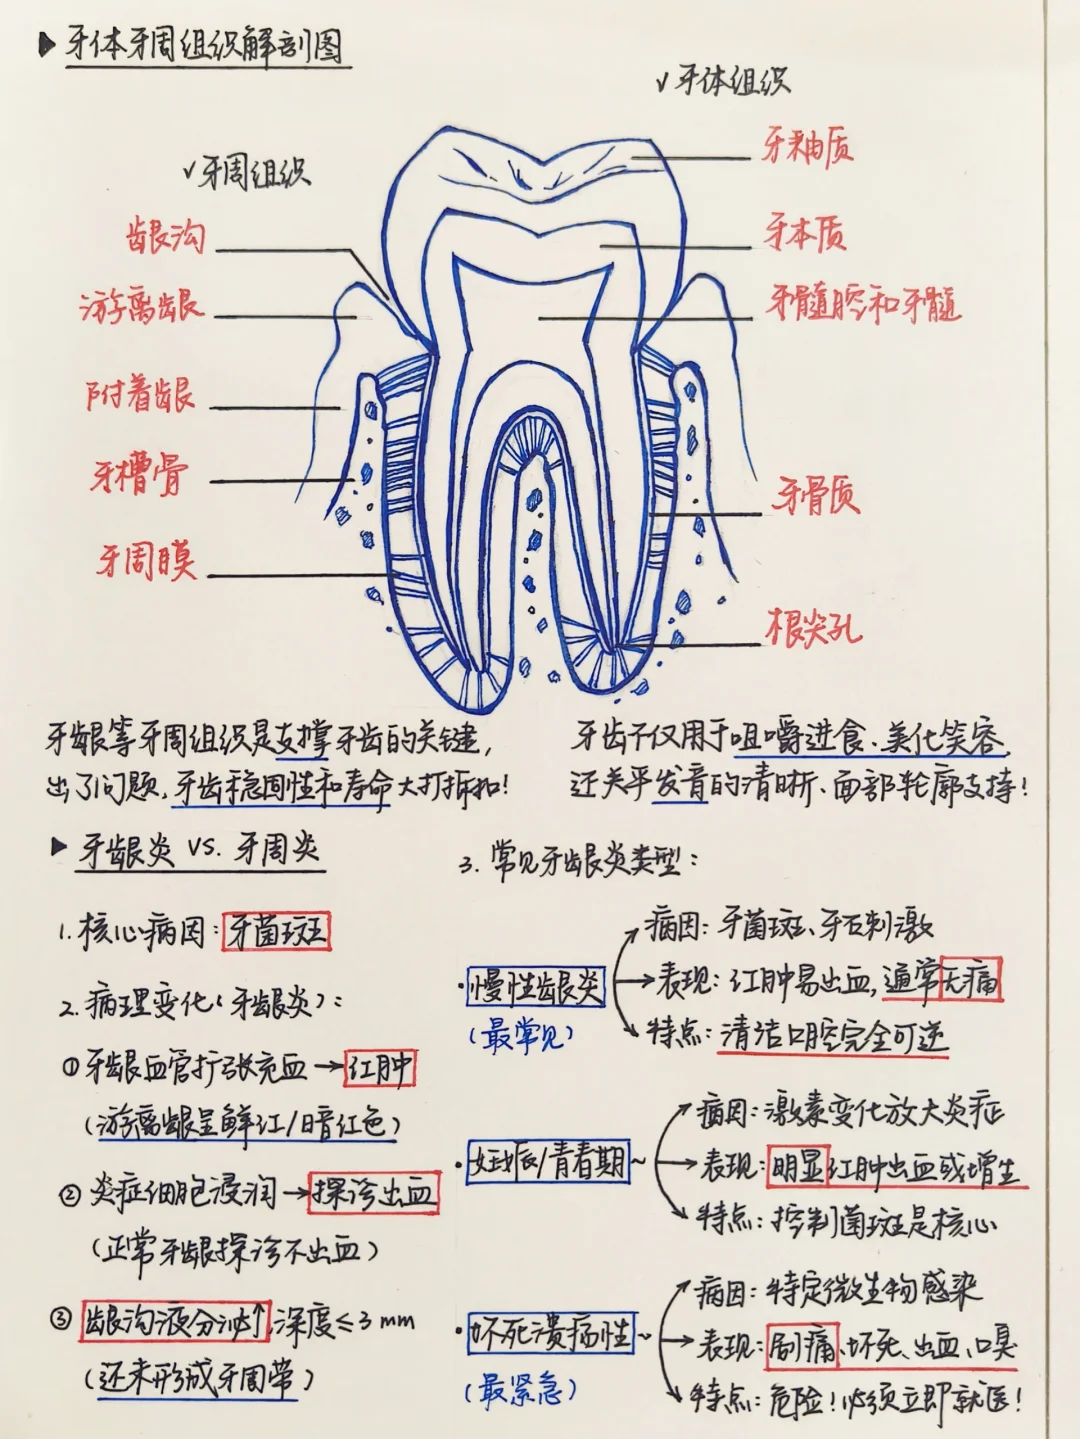 ▶ 牙体牙周组织解剖图
√牙体组织
牙釉质
牙本质
牙髓腔和牙髓
牙骨质
根尖孔
√牙周组织
龈沟
游离龈
附着龈
牙槽骨
牙周膜
牙龈等牙周组织是支撑牙齿的关键，
出了问题，牙齿稳固性和寿命大打折扣！
牙齿不仅用于咀嚼进食、美化笑容，
还关乎发音的清晰、面部轮廓支持！
▶ 牙龈炎 VS. 牙周炎
1. 核心病因：牙菌斑
2. 病理变化（牙龈炎）：
①牙龈血管扩张充血→红肿
（游离龈呈鲜红/暗红色）
② 炎症细胞浸润→探诊出血
（正常牙龈探诊不出血）
③ 龈沟液分泌↑，深度≤3mm
（还未形成牙周袋）
3. 常见牙龈炎类型：
·慢性龈炎
（最常见）
病因：牙菌斑、牙石刺激
表现：红肿易出血，通常无痛
特点：清洁口腔完全可逆
·妊娠/青春期~
病因：激素变化放大炎症
表现：明显红肿出血或增生
特点：控制菌斑是核心
·坏死溃疡性~
（最紧急）
病因：特定微生物感染
表现：剧痛、坏死、出血、口臭
特点：危险！必须立即就医！